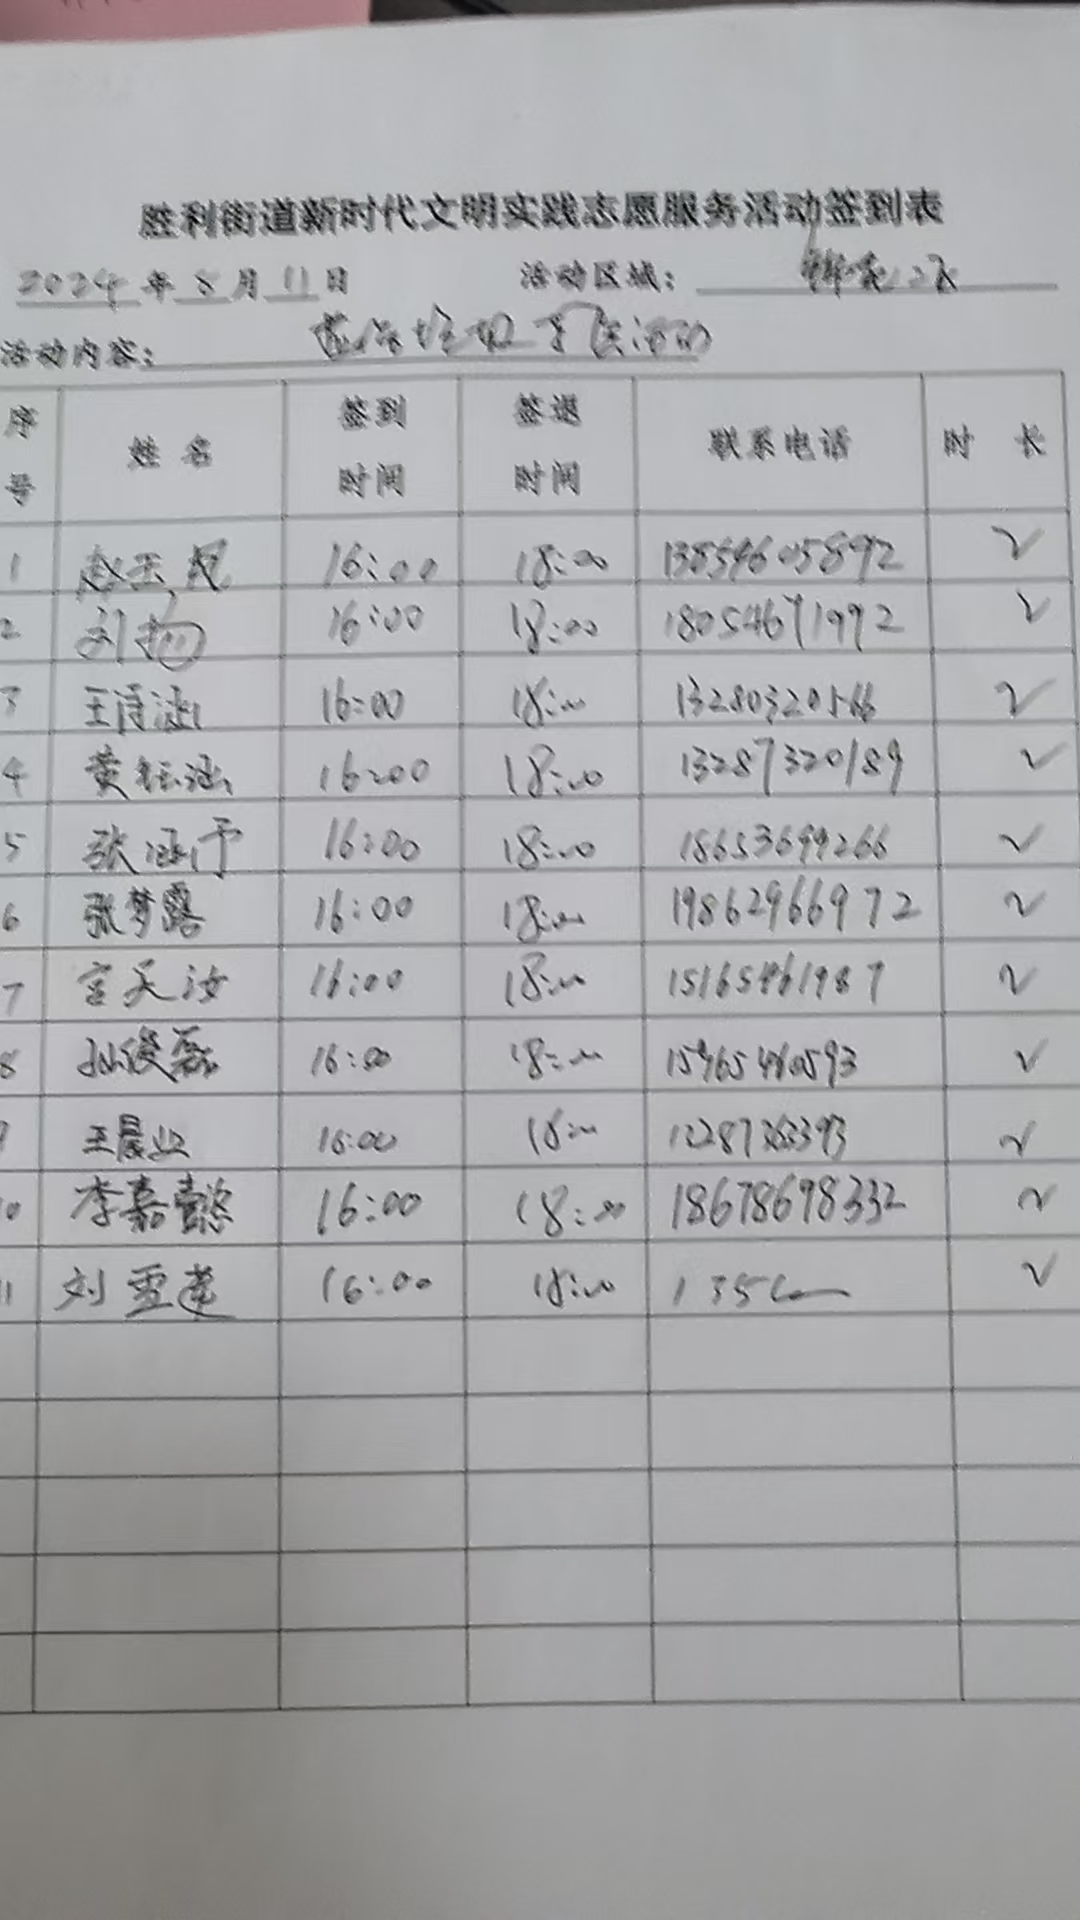 胜利街道新时代文明实践志愿服务活动签到表
2024年8月11日 活动区域：锦苑二区
活动内容：
序号 姓名 签到时间 签退时间 联系电话 时长
1 赵玉 16:00 18:00 13854605892 √
2 刘 16:00 18:00 18054671992 √
3 王诗涵 16:00 18:00 13280320566 √
4 黄钰涵 16:00 18:00 13287320189 √
5 张涵予 16:00 18:00 18653699266 √
6 张梦露 16:00 18:00 19862966972 √
7 宫天汝 16:00 18:00 15165461987 √
8 孙俊磊 16:00 18:00 15965460593 √
9 王晨 16:00 18:00 √
10 李嘉懿 16:00 18:00 18678698332 √
11 刘雪莲 16:00 18:00 135 √